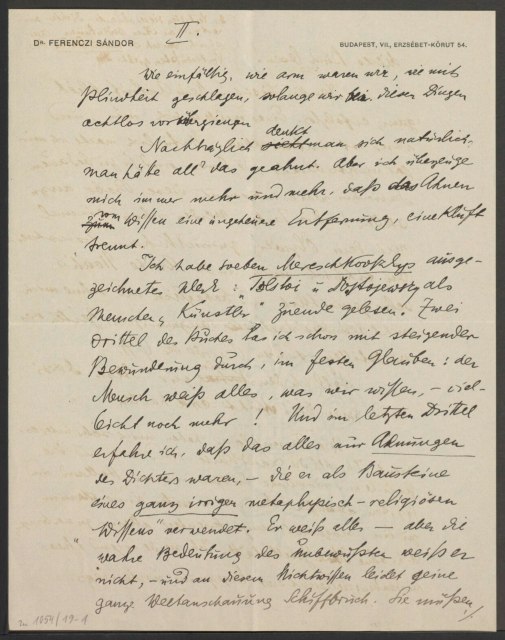 II.
Dr. FERENCZI SÁNDOR
BUDAPEST, VII., ERZSÉBET-KÖRUT 54.
wie einfältig, wie arm waren wir, wie mit
Blindheit geschlagen, solange wir diesen Dingen
achtlos vorübergiengen
Nachträglich denkt man sich natürlich,
man häbe all' das geahnt. Aber ich überzeuge
mich immer mehr und mehr, daß das Ahnen
vom Wissen eine ungeheuere Entfernung, eine Kluft
trennt.
Ich habe soeben Mereschkovszkys ausge-
zeichnetes Werk: "Tolstoi u Dostojewszy als
Menschen u Künstler" zuende gelesen. Zwei
Drittel des Buches las ich schon mit steigender
Bewunderung durch, im festen Glauben: der
Mensch weiß alles, was wir wißen, – viel-
leicht noch mehr! Und im letzten Drittel
erfahre ich, daß das alles nur Ahnungen
des Dichters waren, – die er als Bausteine
eines ganz irrigen metaphysisch-religiösen
"Wissens" verwendet. Er weiß alles – aber die
wahre Bedeutung des Unbewußten weiß er
nicht, – und an diesem Nichtwissen leidet seine
ganze Weltanschauung Schiffbruch. Sie müßen
1054/19-1